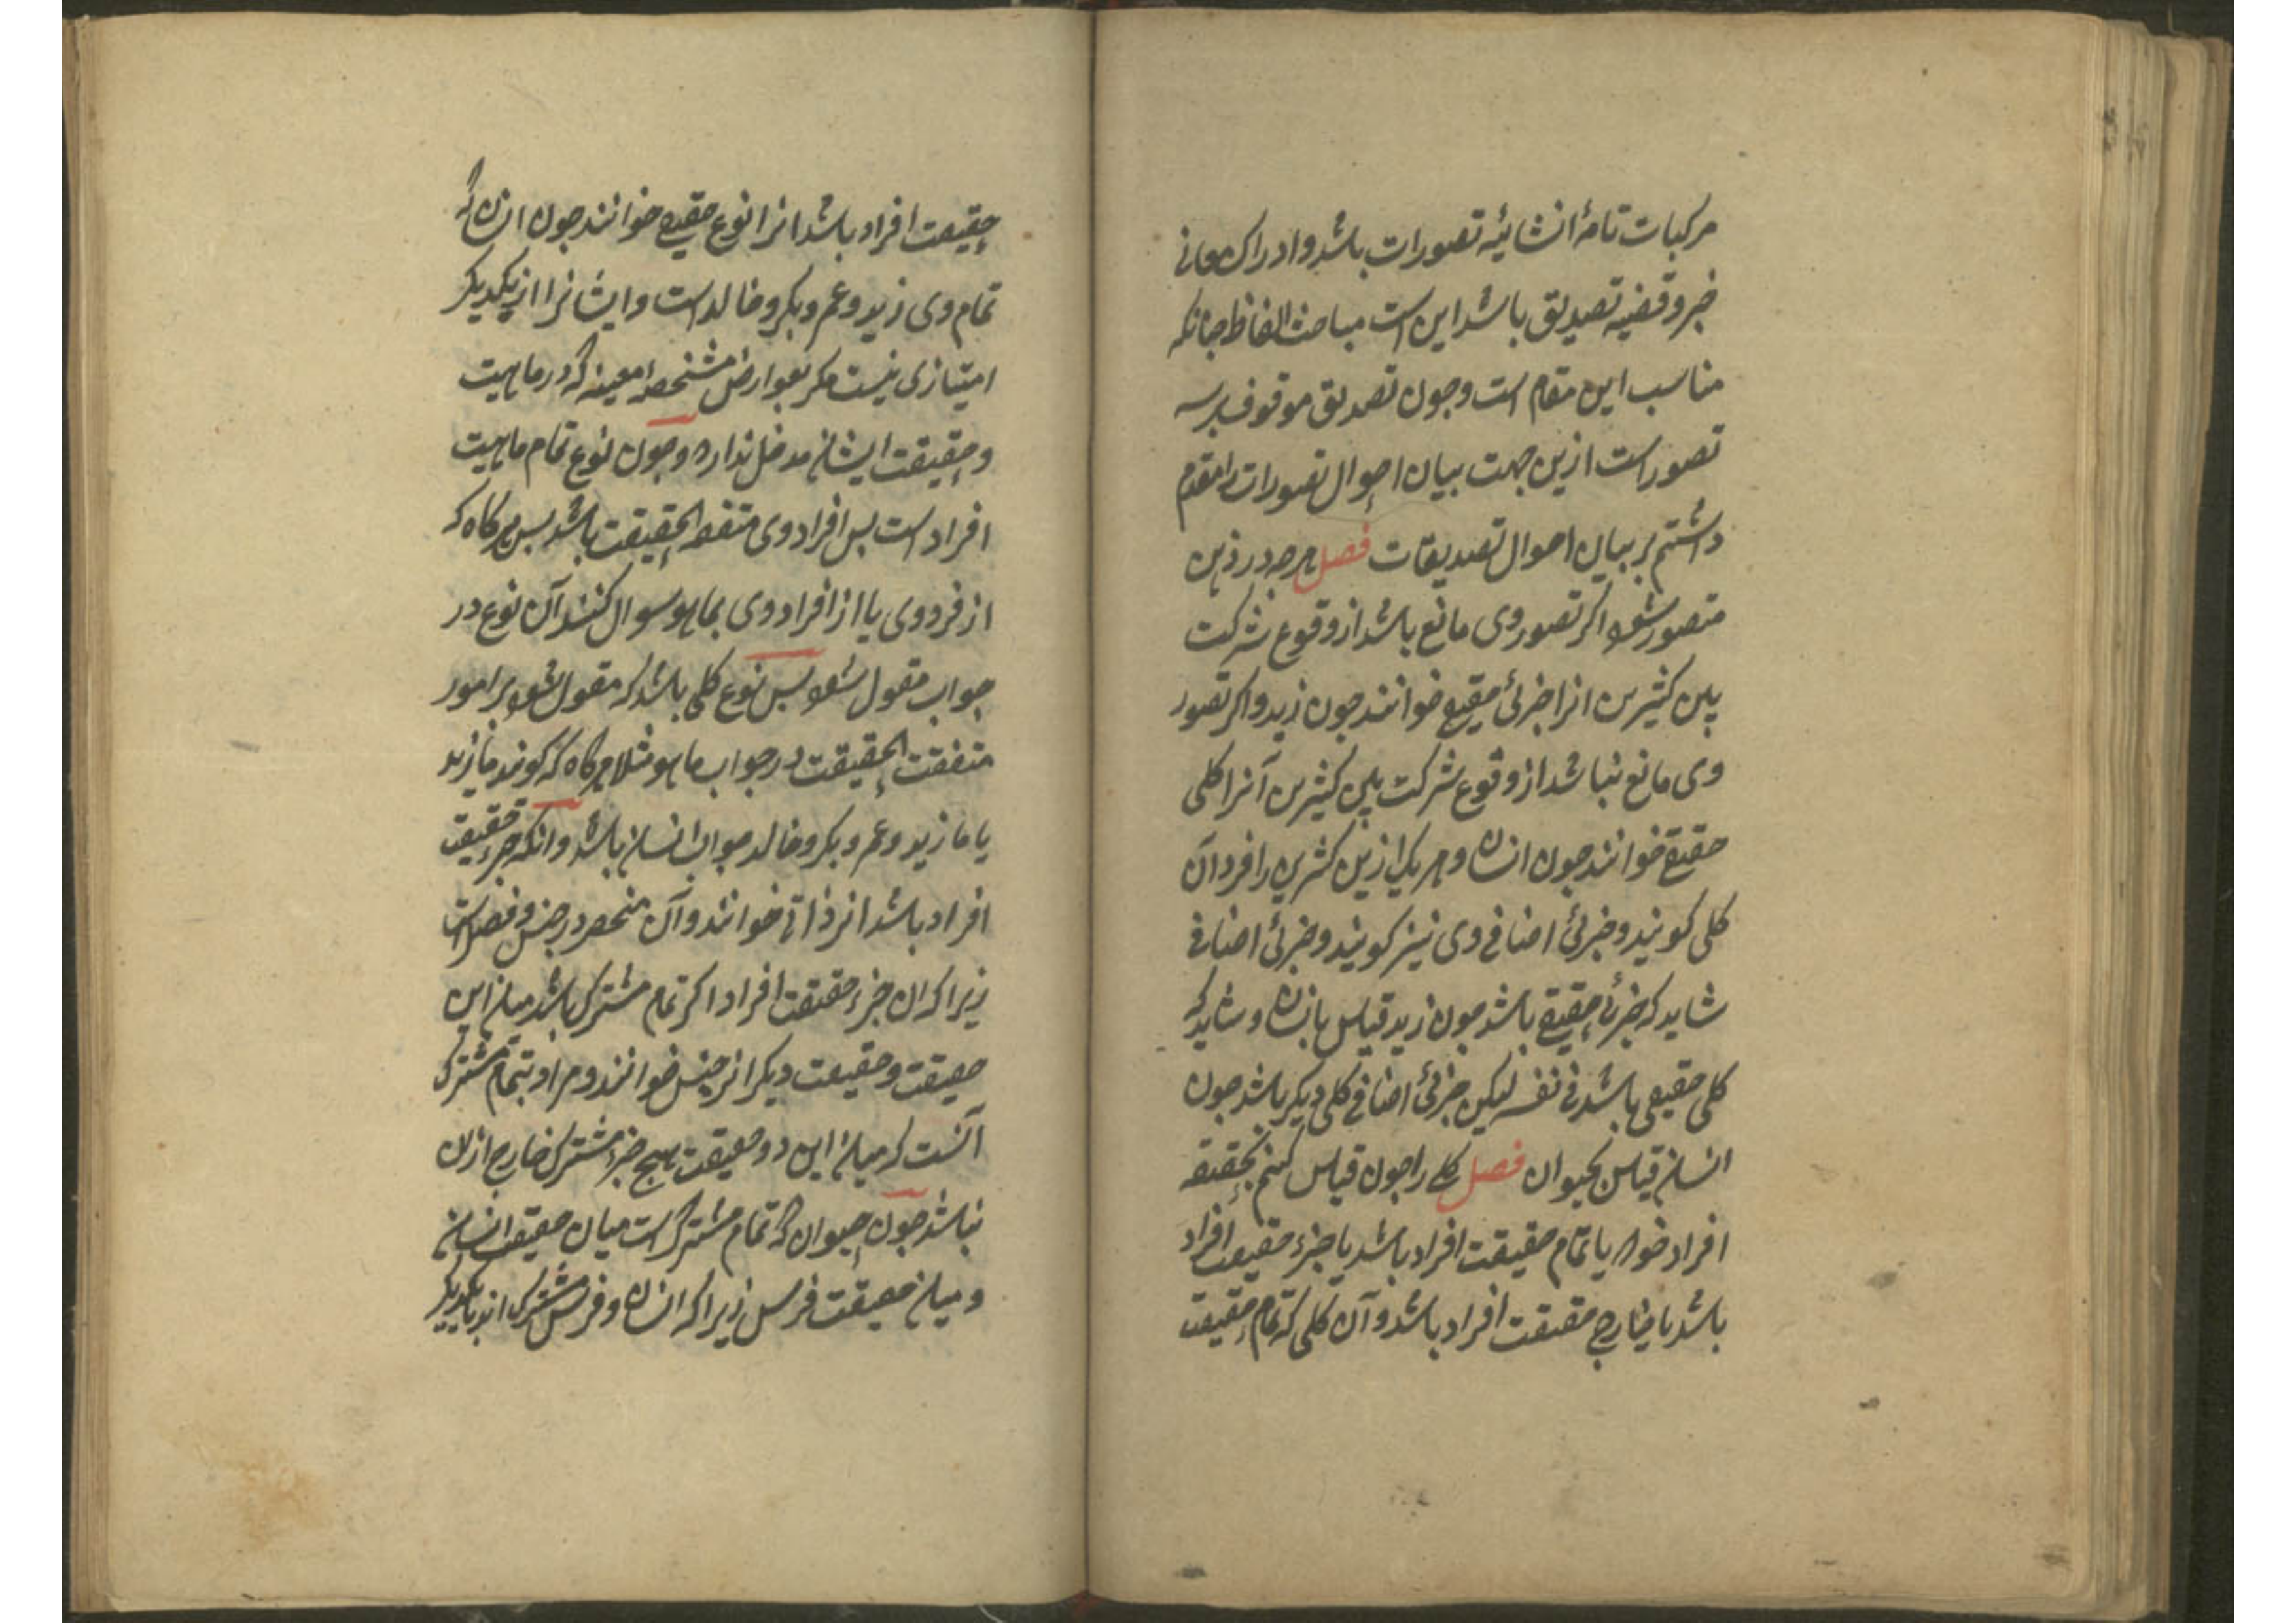 مرکبات تامهٔ انشائیه تصورات باشد و ادراک معانی
خبر و قضیه تصدیق باشد این است مباحث الفاظ چنانکه
مناسب این مقام است و چون تصدیق موقوف بر سه
تصور است ازین جهت بیان احوال تصورات را مقدم
داشتم بر بیان احوال تصدیقات فصل هرچه در ذهن
متصور شود اگر تصور وی مانع باشد از وقوع شرکت
بین کثیرین انرا جزئی حقیقی خوانند جون زید و اکر تصور
وی مانع نباشد از وقوع شرکت بین کثیرین آنرا کلی
حقیقی خوانند جون انسان و هر یکی ازین کثیرین را فرد آن
کلی کویند و جزئی اضافی وی نیز کویند و جزئی اضافی
شاید که جزئی حقیقی باشد جون زید قیاس بانسان و شاید که
کلی حقیقی باشد فی نفسه لیکن جزئی اضافی کلی دیکر باشد جون
انسان قیاس بحیوان فصل کلی را جون قیاس کنیم بحقیقه
افراد خود یا تمام حقیقت افراد باشد یا جزء حقیقت افراد
باشد یا خارج حقیقت افراد باشد و آن کلی که تمام حقیقت
حقیقت افراد باشد انرا نوع حقیقی خوانند جون انسان که
تمام وی زید و عمر و بکر و خالد است و ایشانرا از یکدیکر
امتیازی نیست مکر بعوارض مشخصه معینه که در ماهیت
و حقیقت ایشان مدخل ندارد و جون نوع تمام ماهیت
افراد است بس افراد وی متفقة الحقیقت باشد بس هرکاه که
از فرد وی یا از افراد وی بماهو سوال کنند آن نوع در
جواب مقول شود بس نوع کلی باشد که مقول شود بر امور
متفقت الحقیقت در جواب ماهو مثلا هرکاه که کویند ما زید
یا ما زید و عمر و بکر و خالد جواب انسان باشد و انکه جزء حقیقت
افراد باشد انرا ذاتی خوانند و آن منحصر در جنس و فصل است
زیرا که ان جزء حقیقت افراد اکر تمام مشترک باشد میان این
حقیقت و حقیقت دیکر انرا جنس خوانند و مراد بتمام مشترک
آنست که میان این دو حقیقت هیچ جزء مشترک خارج ازان
نباشد جون حیوان که تمام مشترک است میان حقیقت انسان
و میان حقیقت فرس زیرا که انسان و فرس مشترک اند با یکدیکر